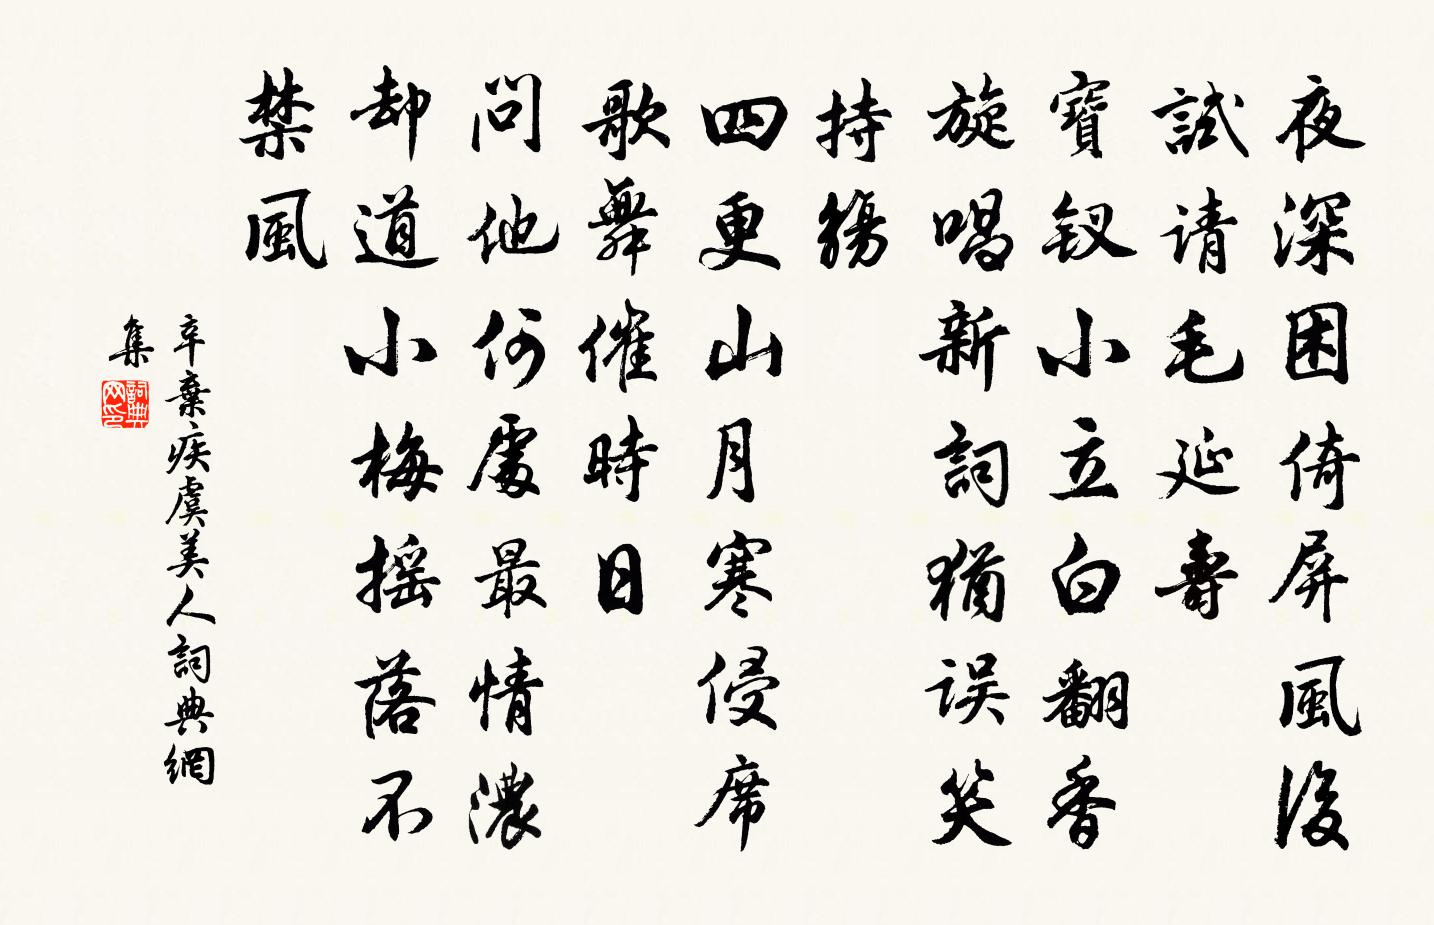 夜深困倚屏風後
試请毛延壽
寶钗小立白翻香
旋唱新詞猶误笑
持觴
四更山月寒侵席
歌舞催時日
問他何處最情濃
却道小梅摇落不
禁風
辛棄疾虞美人詞典網
集
詞典网印